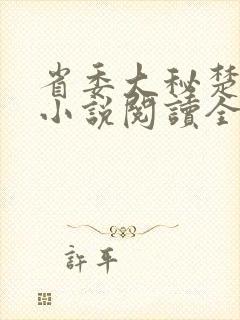 省委大秘楚
小說閱讀全
許平